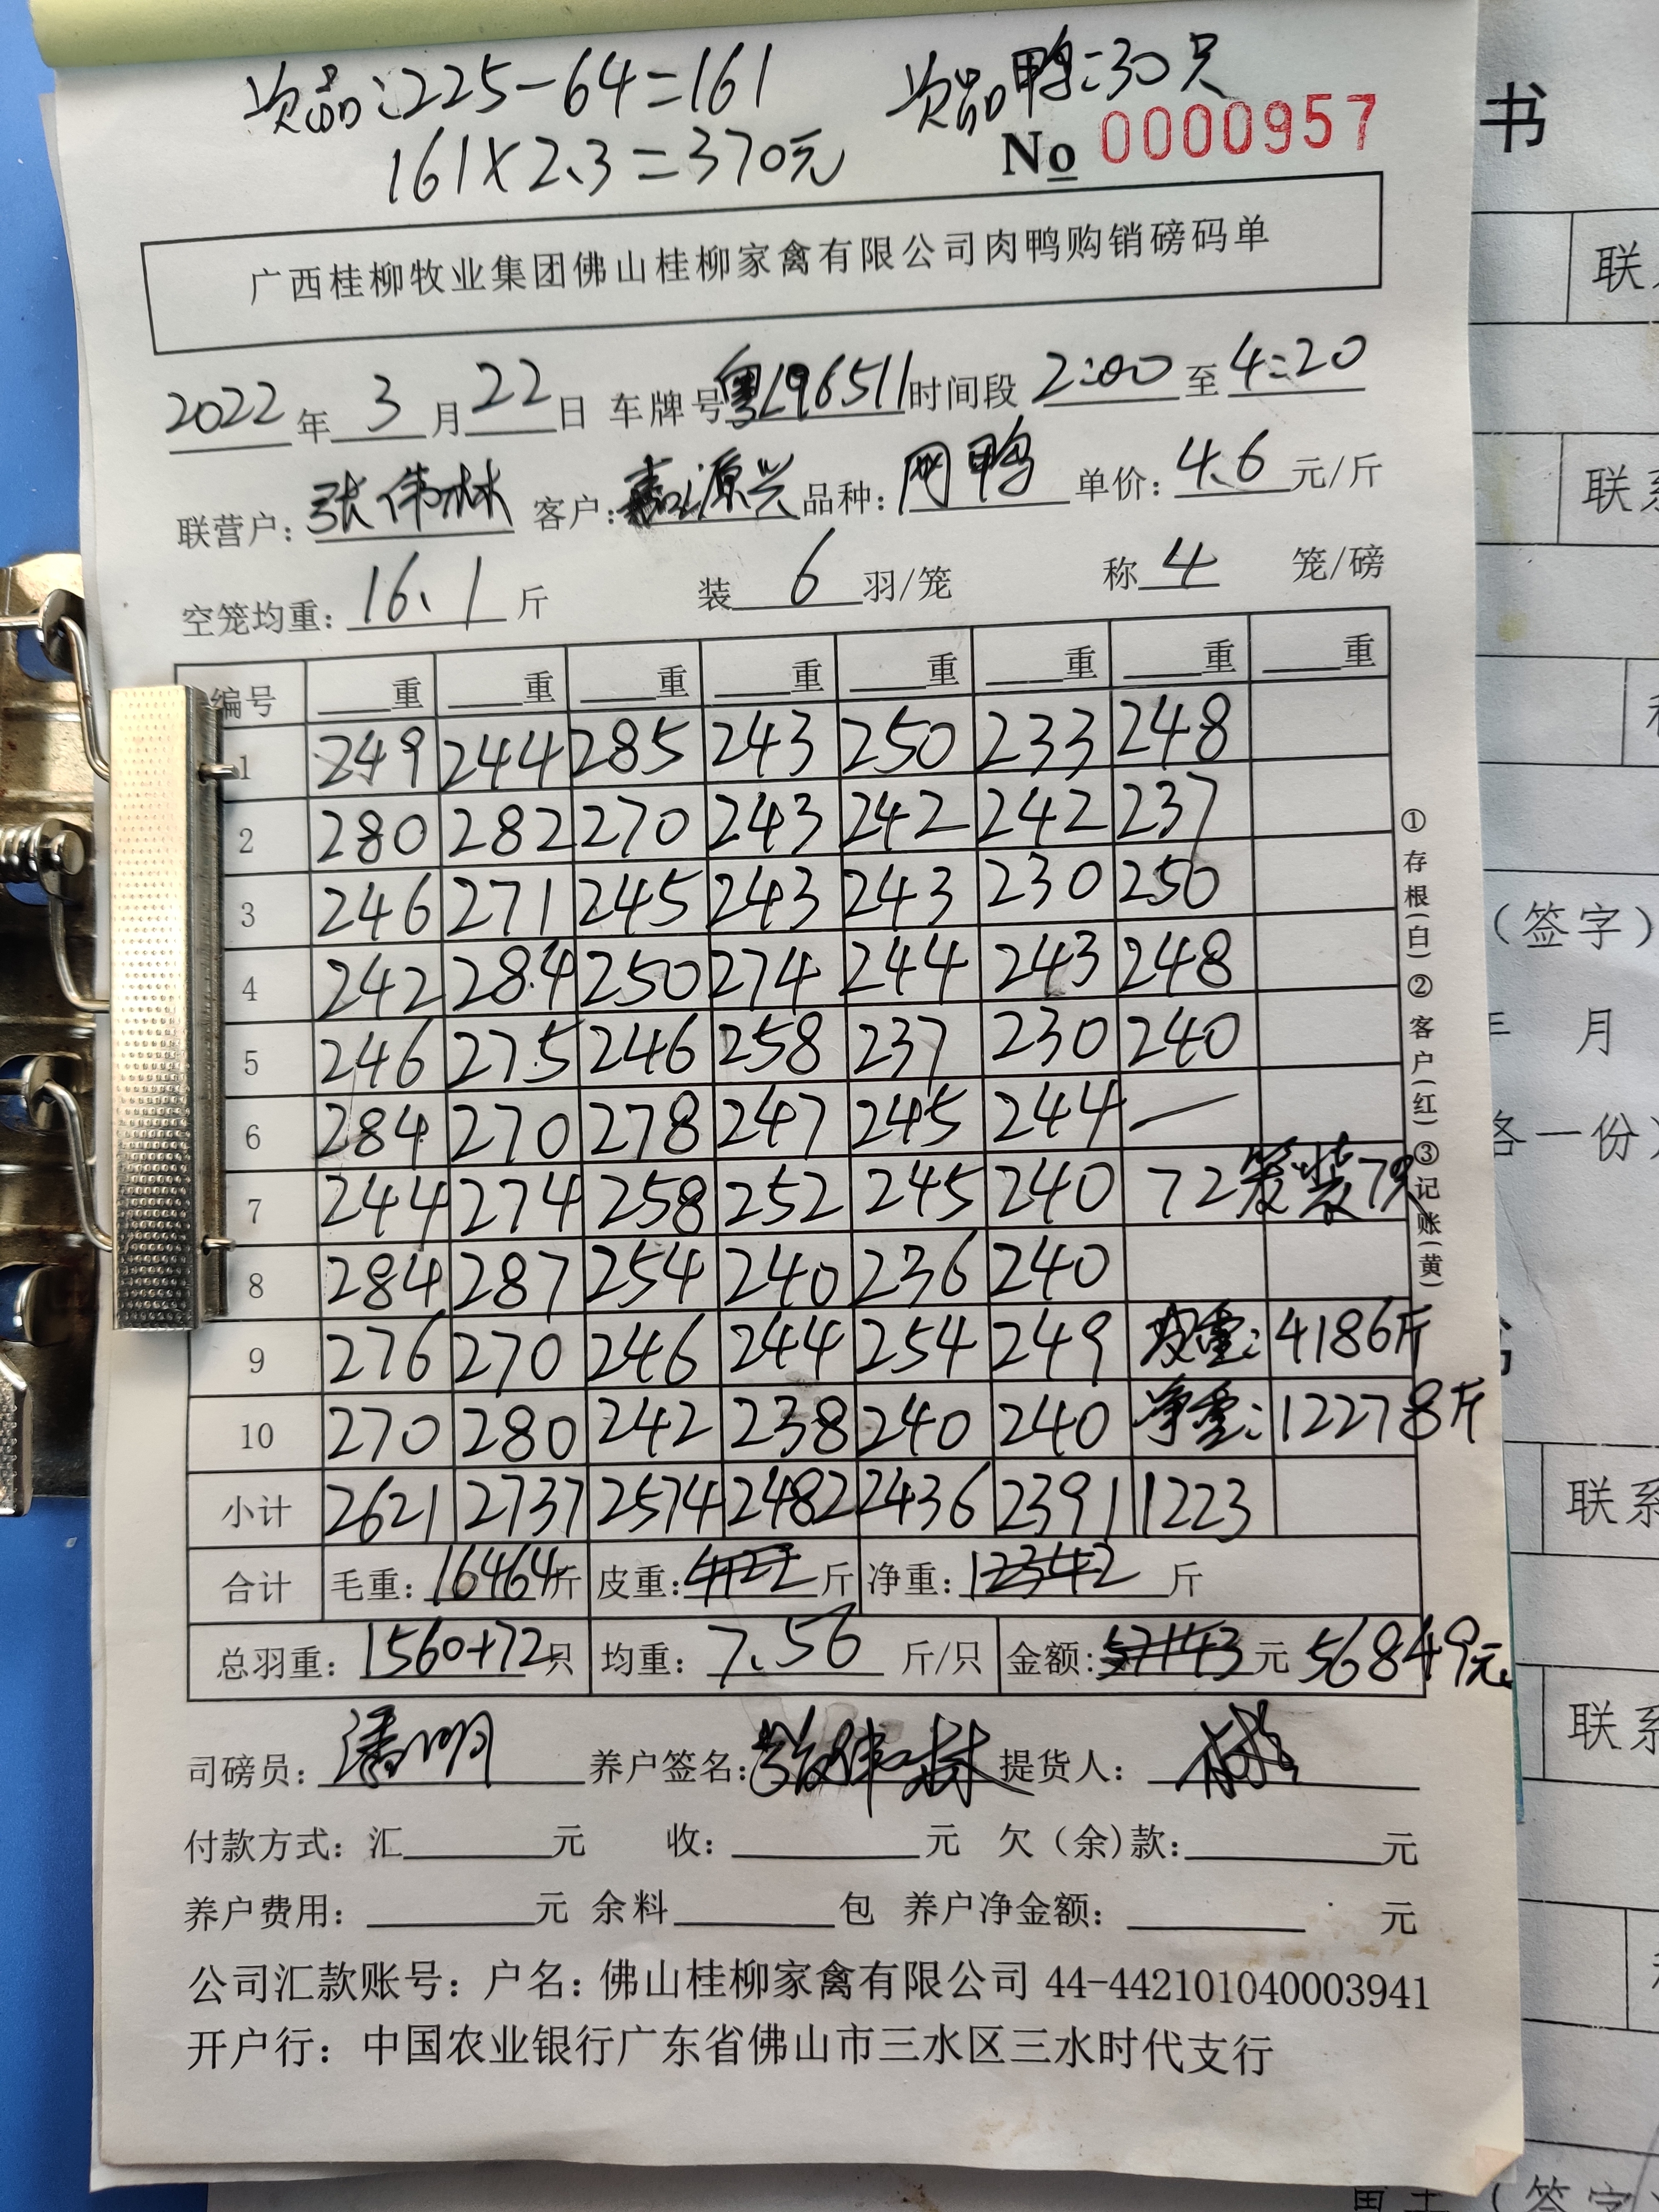 次品:225-64=161 次品鸭:30只
161×2.3=370元 No 0000957
广西桂柳牧业集团佛山桂柳家禽有限公司肉鸭购销磅码单
2022年3月22日 车牌号粤L96511时间段2:00至4:20
联营户:张伟林 客户:嘉源兴 品种:网鸭 单价:4.6元/斤
空笼均重:16.1斤 装6羽/笼 称4笼/磅
编号 重 重 重 重 重 重 重 重
1 249 244 285 243 250 233 248
2 280 282 270 243 242 242 237
3 246 271 245 243 243 230 250
4 242 284 250 274 244 243 248
5 246 275 246 258 237 230 240
6 284 270 278 247 245 244 —
7 244 274 258 252 245 240 72笼装7只
8 284 287 254 240 236 240
9 276 270 246 244 254 249 皮重:4186斤
10 270 280 242 238 240 240 净重:12278斤
小计 2621 2737 2574 2482 2436 2391 1223
合计 毛重:16464斤 皮重:4122斤 净重:12342斤
总羽重:1560+72只 均重:7.56斤/只 金额:57143元 56849元
司磅员:潘明 养户签名:张伟林 提货人:
付款方式:汇 元 收: 元 欠(余)款: 元
养户费用: 元 余料 包 养户净金额: 元
公司汇款账号:户名:佛山桂柳家禽有限公司 44-442101040003941
开户行:中国农业银行广东省佛山市三水区三水时代支行
①存根(白)②客户(红)③记账(黄)
书
联系
联系
(签字)
年 月
各一份)
联系
联系
(签字)